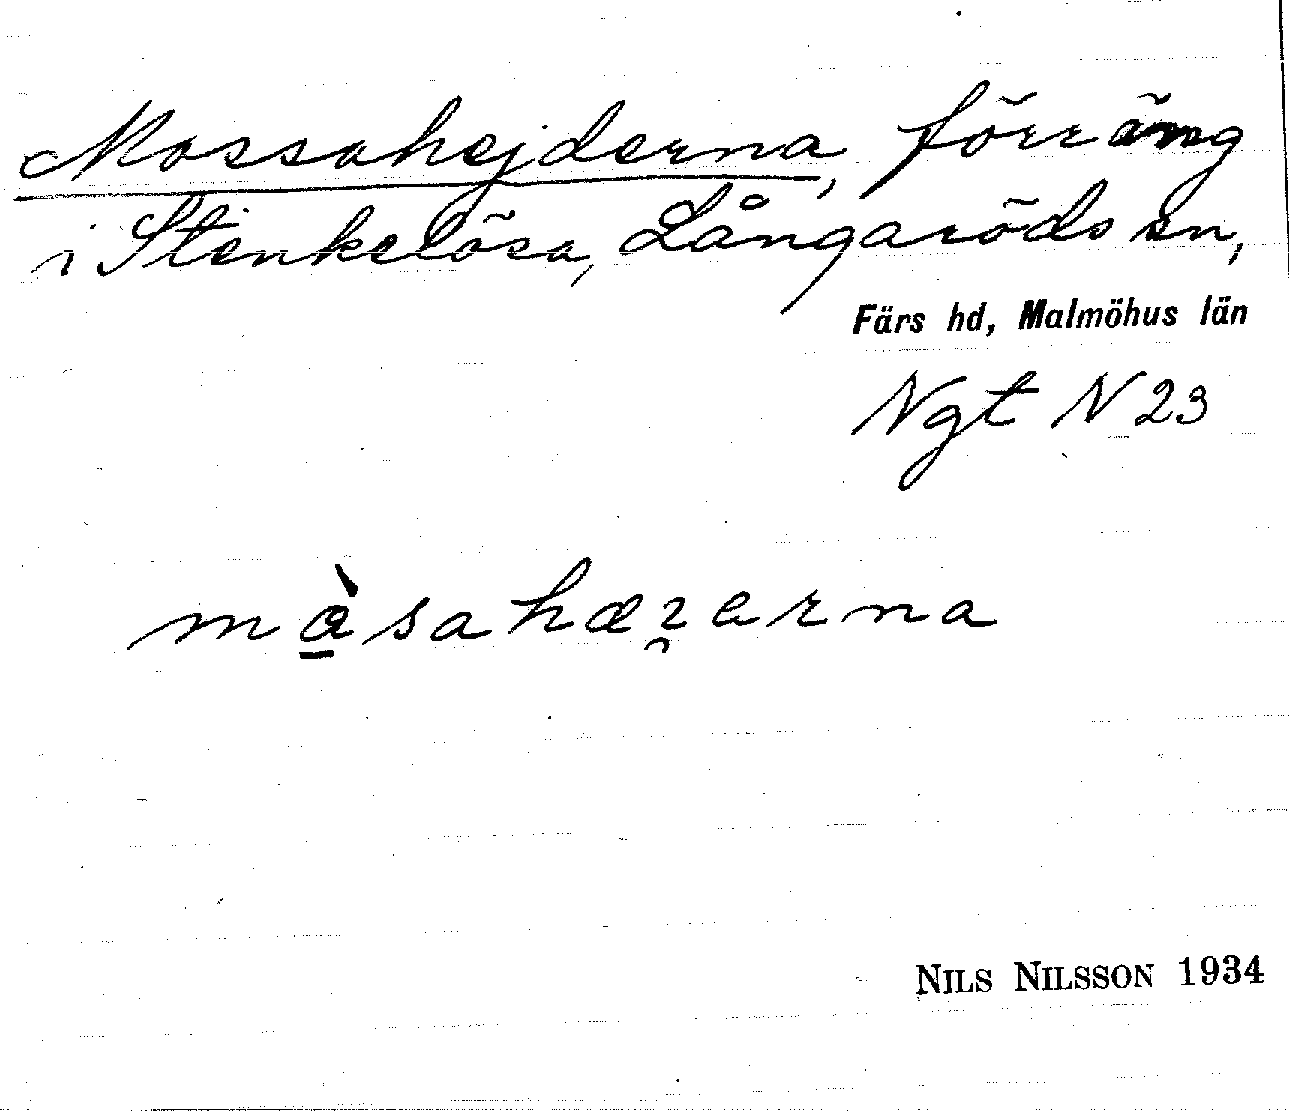 Mossahejderna, förr äng
i Stenkelösa, Långaröds sn,
Färs hd, Malmöhus län
Ngt N 23
NILS NILSSON 1934